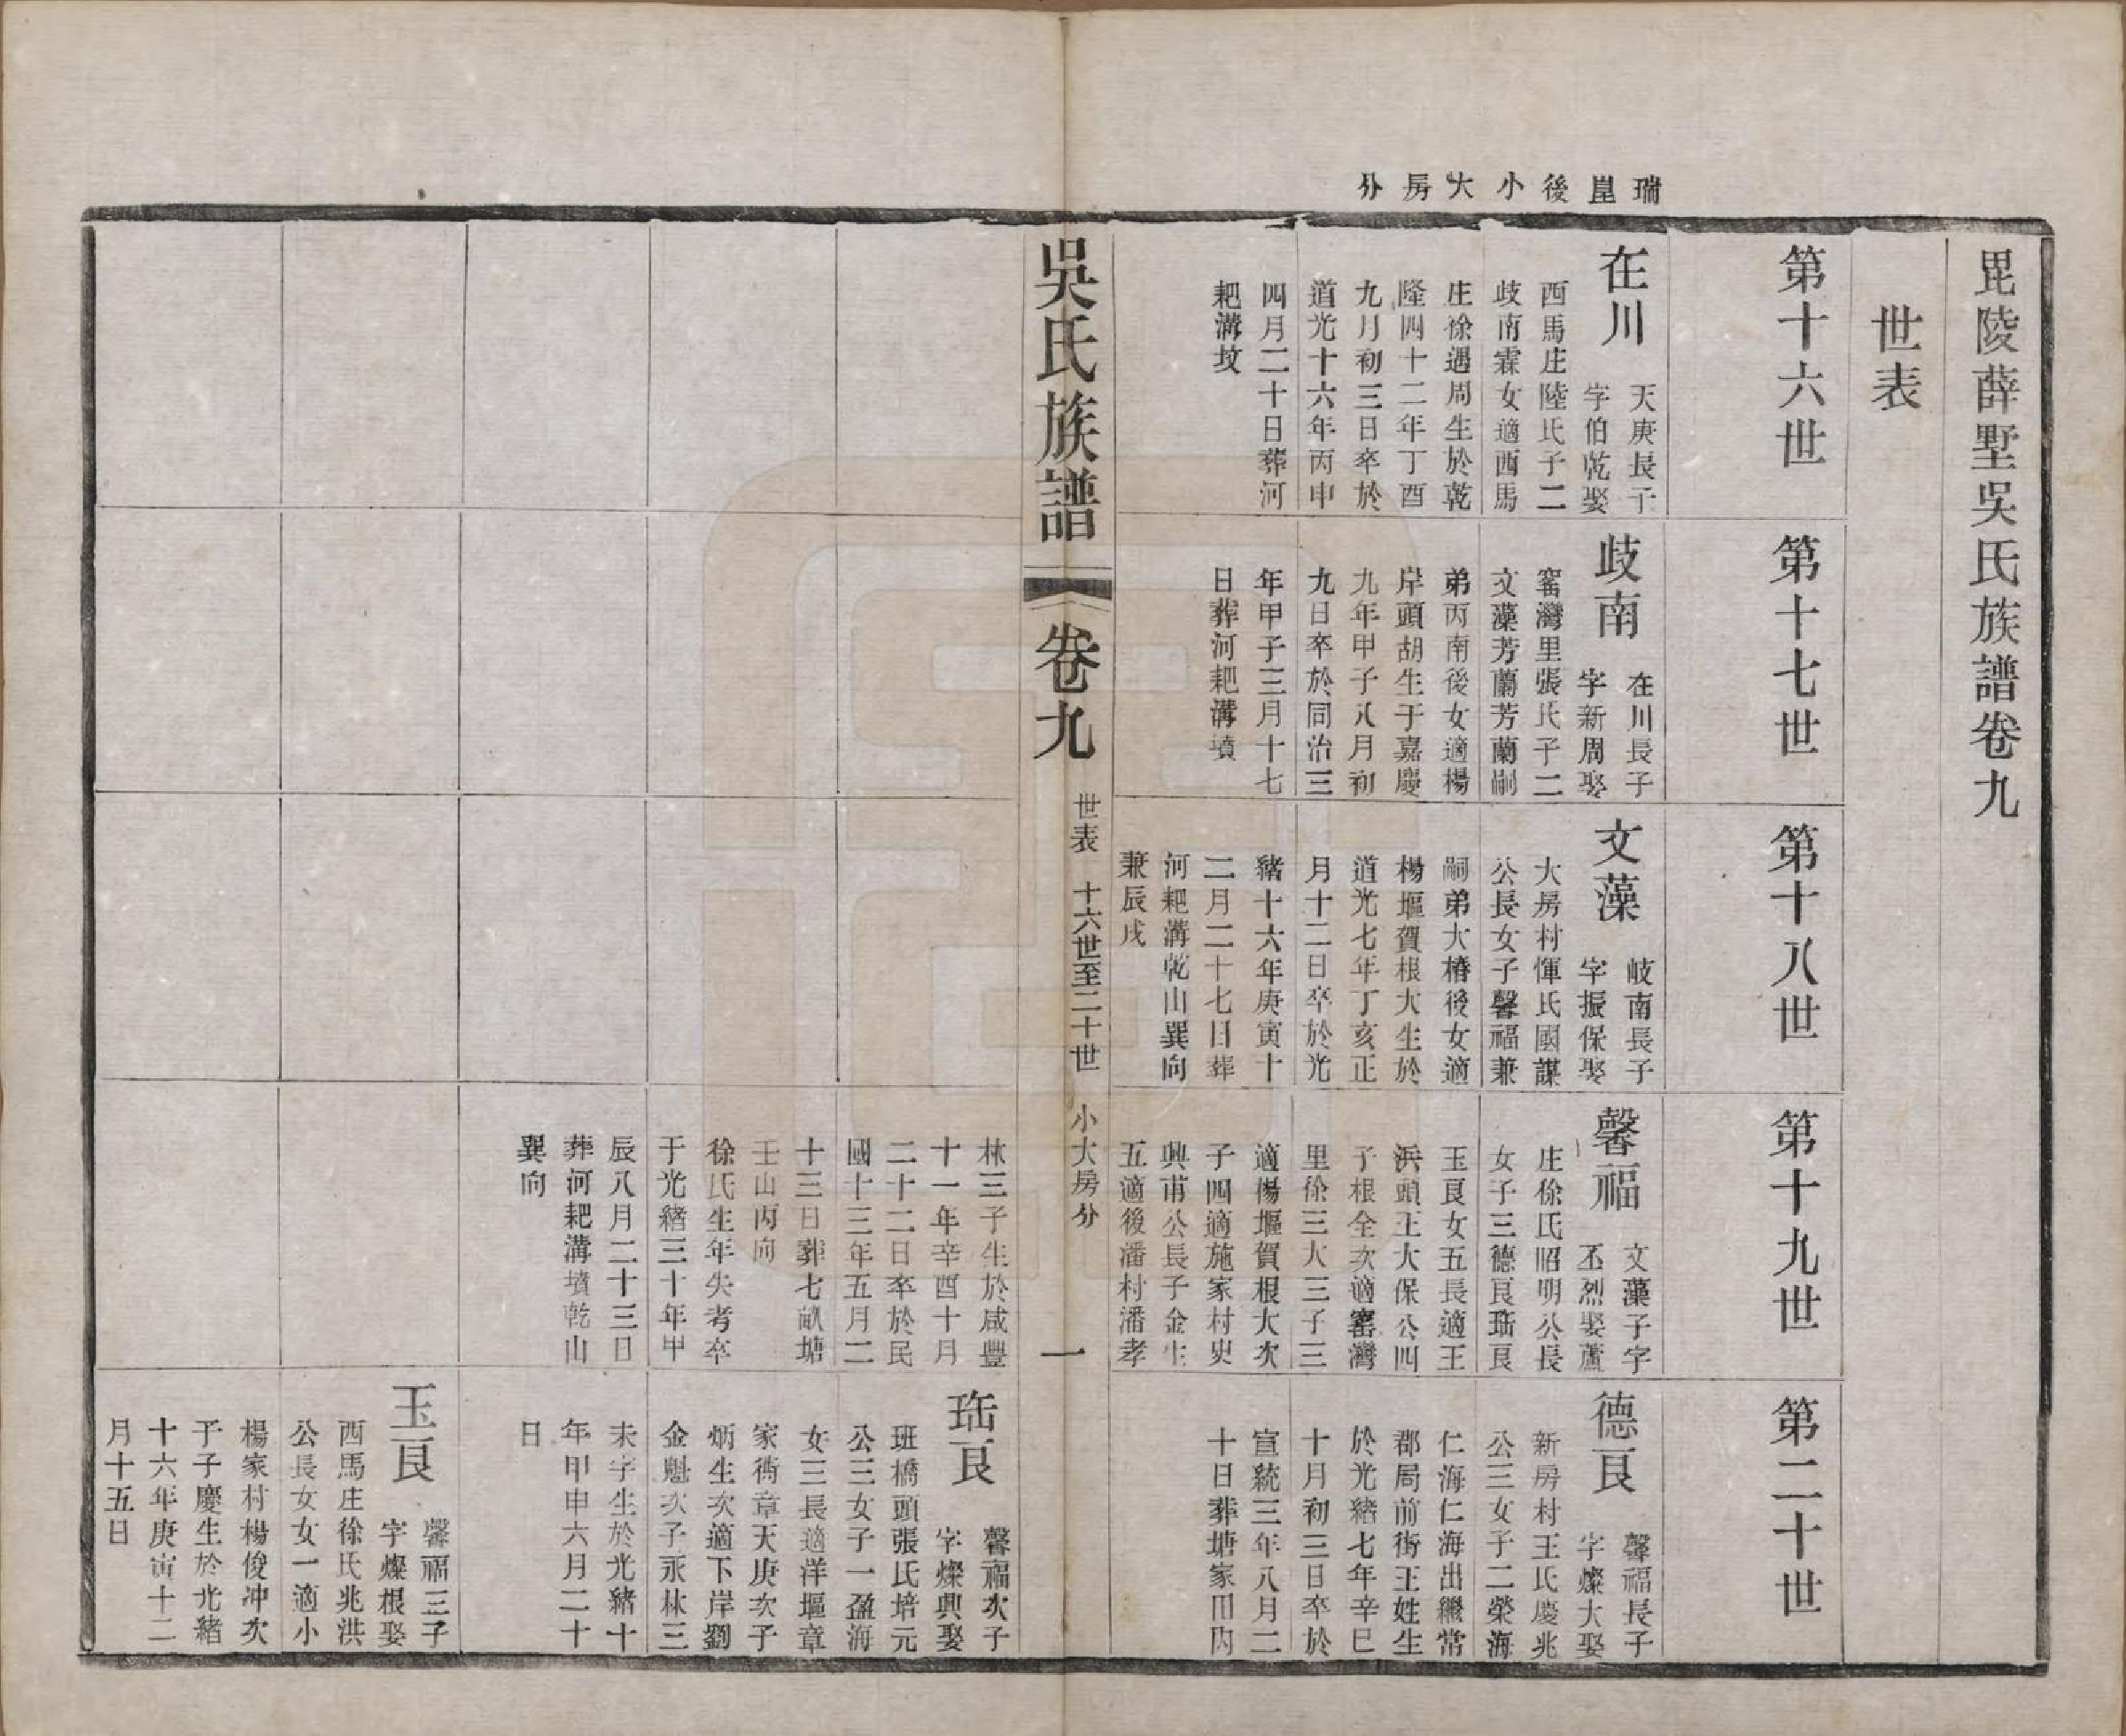 瑞崑後小大房分
毘陵薛墅吳氏族譜卷九
世表
第十六世
第十七世
第十八世
第十九世
第二十世
在川
天庚長子
字伯乾娶
西馬庄陸氏子二
歧南霖女適西馬
庄徐遇周生於乾
隆四十二年丁酉
九月初三日卒於
道光十六年丙申
四月二十日葬河
耙溝坟
歧南
在川長子
字新周娶
窰灣里張氏子二
文藻芳蘭芳蘭嗣
弟丙南後女適楊
岸頭胡生于嘉慶
九年甲子八月初
九日卒於同治三
年甲子三月十七
日葬河耙溝墳
文藻
岐南長子
字振保娶
大房村惲氏國謀
公長女子馨福兼
嗣弟大椿後女適
楊堰賀根大生於
道光七年丁亥正
月十二日卒於光
緒十六年庚寅十
二月二十七日葬
河耙溝乾山巽向
兼辰戌
馨福
文藻子字
丕烈娶蘆
庄徐氏昭明公長
女子三德良珤良
玉良女五長適王
浜頭王大保公四
子根全次適窰灣
里徐三大三子三
適楊堰賀根大次
子四適施家村史
興甫公長子金生
五適後潘村潘孝
德良
馨福長子
字燦大娶
新房村王氏慶兆
公三女子二榮海
仁海仁海出繼常
郡局前街王姓生
於光緒七年辛巳
十月初三日卒於
宣統三年八月二
十日葬塘家田內
吳氏族譜
卷九
世表 十六世至二十世 小大房分
一
林三子生於咸豐
十一年辛酉十月
二十二日卒於民
國十三年五月二
十三日葬七畝塘
壬山丙向
徐氏生年失考卒
于光緒三十年甲
辰八月二十三日
葬河耙溝墳乾山
巽向
珤良
馨福次子
字燦興娶
班橋頭張氏培元
公三女子一盈海
女三長適洋堰章
家衖章天庚次子
炳生次適下岸劉
金魁次子永林三
未字生於光緒十
年甲申六月二十
日
玉良
馨福三子
字燦根娶
西馬庄徐氏兆洪
公長女女一適小
楊家村楊俊冲次
子子慶生於光緒
十六年庚寅十二
月十五日